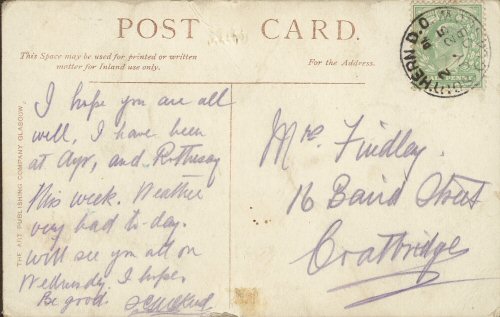 POST CARD.
This Space may be used for printed or written
matter for Inland use only.
For the Address.
THE ART PUBLISHING COMPANY GLASGOW
I hope you are all
well, I have been
at Ayr, and Rothesay
this week. Weather
very bad to-day.
will see you all on
Wednesday. I hope
Be good.
Mrs Findley.
16 Baird Street
Coatbridge